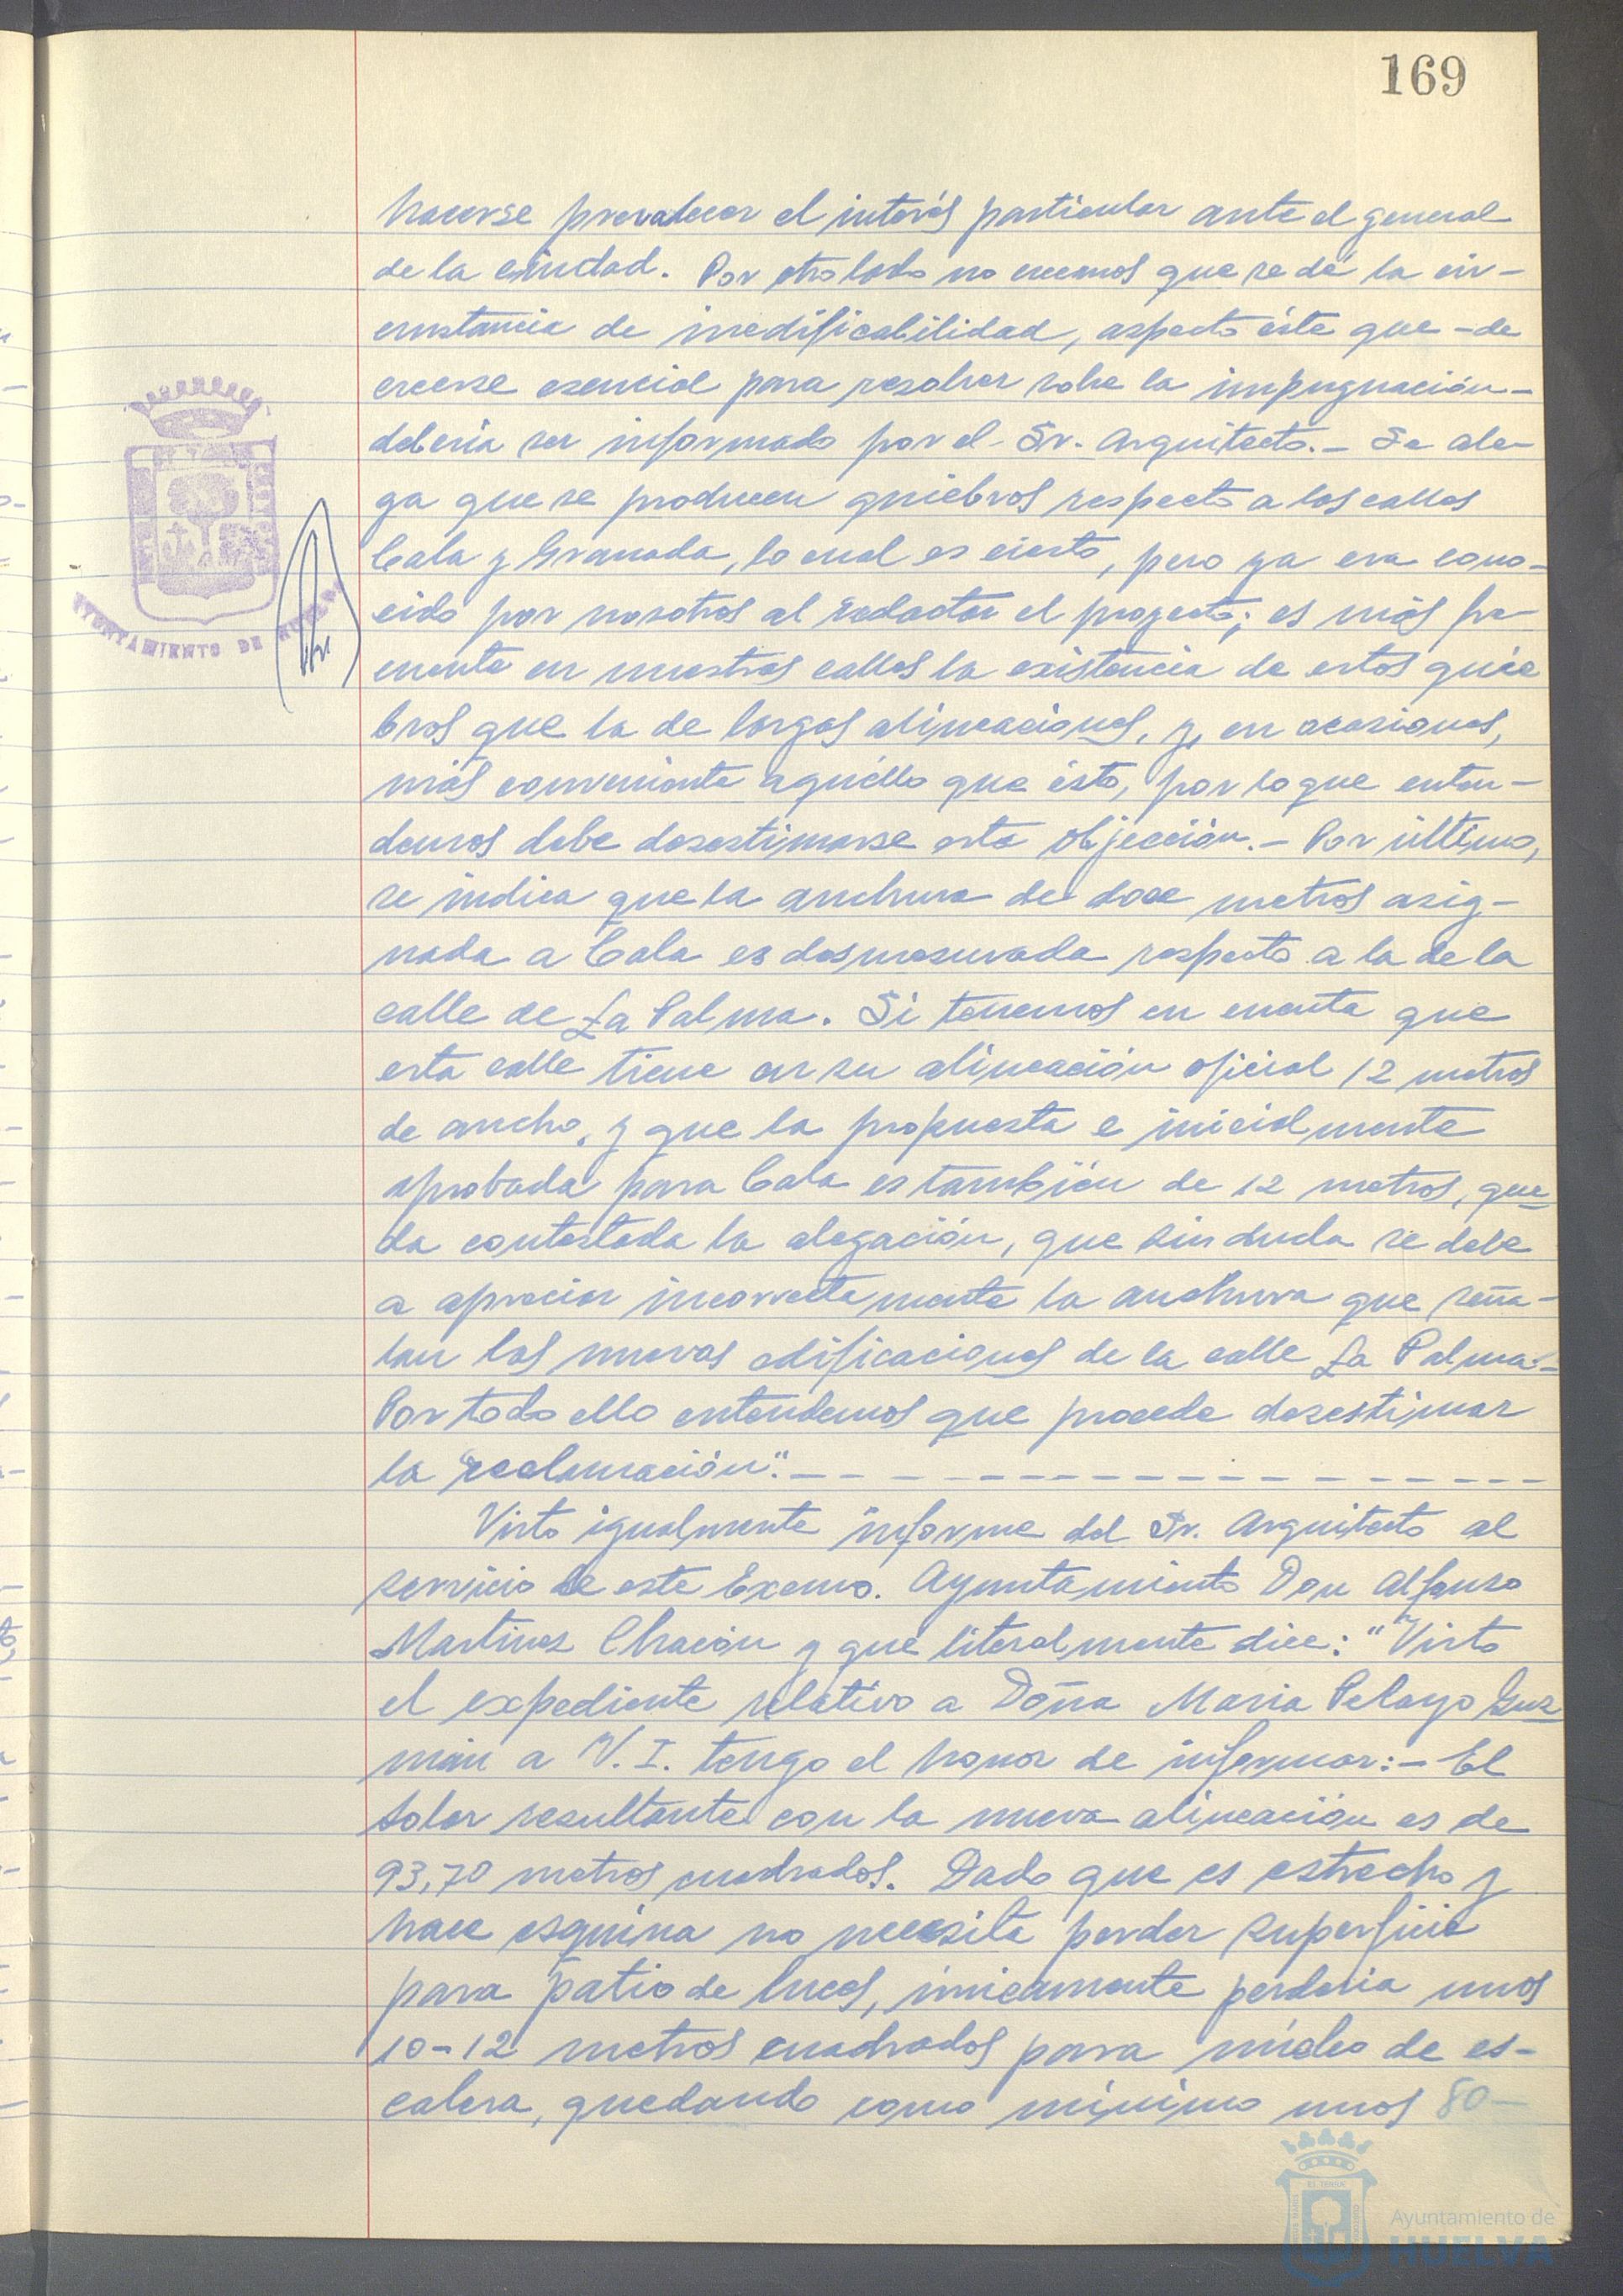 169
hacerse prevalecer el interés particular ante el general
de la ciudad. Por otro lado no creemos que se dé la cir-
cunstancia de inedificabilidad, aspecto éste que -de
creerse esencial para resolver sobre la impugnación-
debería ser informado por el Sr. Arquitecto.- Se ale-
ga que se producen quiebros respecto a las calles
Cala y Granada, lo cual es cierto, pero ya era cono-
cido por nosotros al redactar el proyecto; es más fre
cuente en nuestras calles la existencia de estos quie
bros que la de largas alineaciones, y, en ocasiones,
más conveniente aquéllo que ésto, por lo que enten-
demos debe desestimarse esta objección.- Por último,
se indica que la anchura de doce metros asig-
nada a Cala es desmesurada respecto a la de la
calle de La Palma. Si tenemos en cuenta que
esta calle tiene en su alineación oficial 12 metros
de ancho, y que la propuesta e inicialmente
aprobada para Cala es también de 12 metros, que-
da contestada la alegación, que sin duda se debe
a apreciar incorrectamente la anchura que seña-
lan las nuevas edificaciones de la calle La Palma.-
Por todo ello entendemos que procede desestimar
la reclamación".- - - - - - - - - - - - - - -
Visto igualmente informe del Sr. Arquitecto al
servicio de este Excmo. Ayuntamiento Don Alfonso
Martinez Chacón y que literalmente dice: "Visto
el expediente relativo a Doña Maria Pelayo Guz
mán a V. I. tengo el honor de informar:- El
solar resultante con la nueva alineación es de
93,70 metros cuadrados. Dado que es estrecho y
hace esquina no necesita perder superficie
para patio de luces, únicamente perdería unos
10-12 metros cuadrados para núcleo de es-
calera, quedando como mínimo unos 80-
AYUNTAMIENTO DE HUELVA
Ayuntamiento de
HUELVA